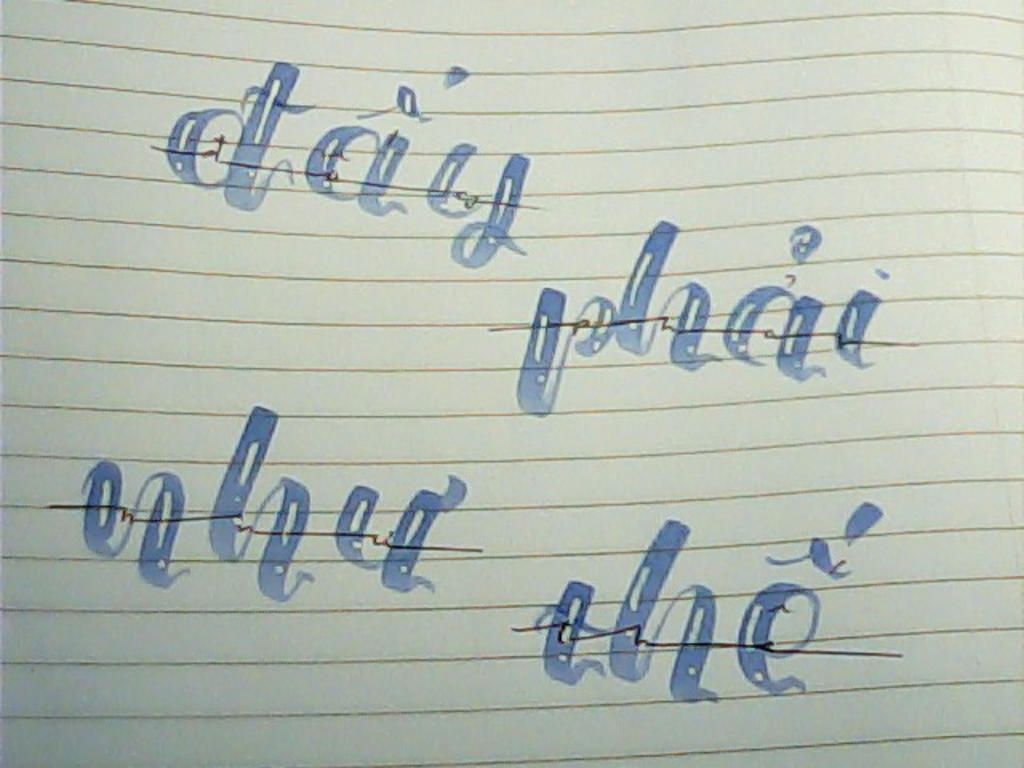 đấy
phải
như
thế